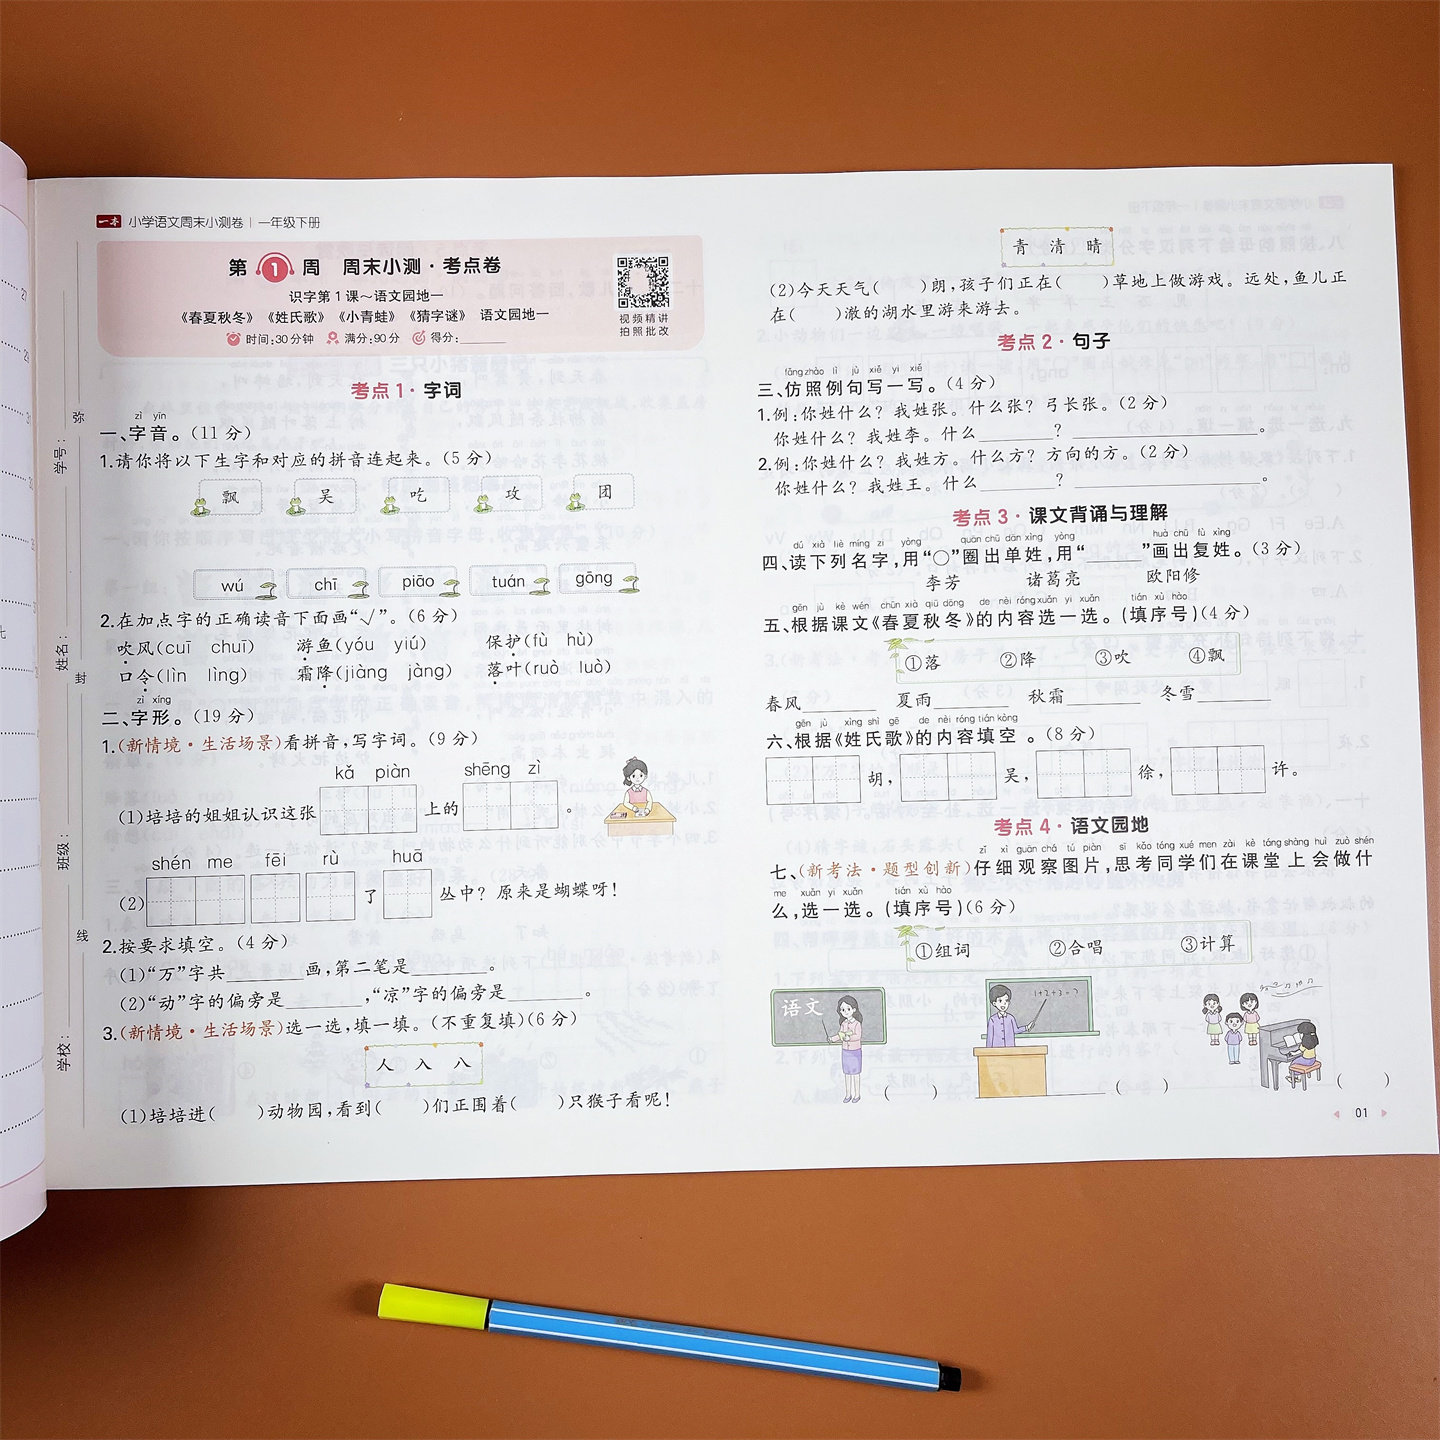 一本 小学语文周末小测卷 | 一年级下册
第1周 周末小测·考点卷
识字第1课～语文园地一
《春夏秋冬》《姓氏歌》《小青蛙》《猜字谜》 语文园地一
时间:30分钟 满分:90分 得分:________
视频精讲
拍照批改
考点1·字词
zì yīn
一、字音。(11分)
1.请你将以下生字和对应的拼音连起来。(5分)
飘 吴 吃 攻 团
wú chī piāo tuán gōng
2.在加点字的正确读音下面画“√”。(6分)
吹风(cuī chuī) 游鱼(yóu yiú) 保护(fù hù)
口令(lìn lìng) 霜降(jiàng jàng) 落叶(ruò luò)
zì xíng
二、字形。(19分)
1.(新情境·生活场景)看拼音,写字词。(9分)
kǎ piàn shēng zì
(1)培培的姐姐认识这张 上的 。
shén me fēi rù huā
(2) 了 丛中?原来是蝴蝶呀!
2.按要求填空。(4分)
(1)“万”字共________画,第二笔是________。
(2)“动”字的偏旁是________,“凉”字的偏旁是________。
3.(新情境·生活场景)选一选,填一填。(不重复填)(6分)
人 入 八
(1)培培进( )动物园,看到( )们正围着( )只猴子看呢!
学校: 班级: 姓名: 学号:
线 封 弥
青 清 晴
(2)今天天气( )朗,孩子们正在( )草地上做游戏。远处,鱼儿正
在( )澈的湖水里游来游去。
考点2·句子
fǎng zhào lì jù xiě yi xiě
三、仿照例句写一写。(4分)
1.例:你姓什么?我姓张。什么张?弓长张。(2分)
你姓什么?我姓李。什么________?________________。
2.例:你姓什么?我姓方。什么方?方向的方。(2分)
你姓什么?我姓王。什么________?________________。
考点3·课文背诵与理解
dú xià liè míng zi yòng quān chū dān xìng yòng huà chū fù xìng
四、读下列名字,用“○”圈出单姓,用“______”画出复姓。(3分)
李芳 诸葛亮 欧阳修
gēn jù kè wén chūn xià qiū dōng de nèi róng xuǎn yi xuǎn tián xù hào
五、根据课文《春夏秋冬》的内容选一选。(填序号)(4分)
①落 ②降 ③吹 ④飘
春风________ 夏雨________ 秋霜________ 冬雪________
gēn jù xìng shì gē de nèi róng tián kòng
六、根据《姓氏歌》的内容填空。(8分)
胡, 吴, 徐, 许。
考点4·语文园地
zǐ xì guān chá tú piàn sī kǎo tóng xué men zài kè táng shàng huì zuò shén
七、(新考法·题型创新)仔细观察图片,思考同学们在课堂上会做什
me xuǎn yi xuǎn tián xù hào
么,选一选。(填序号)(6分)
①组词 ②合唱 ③计算
语文
1+2+3=?
( ) ( ) ( )
01